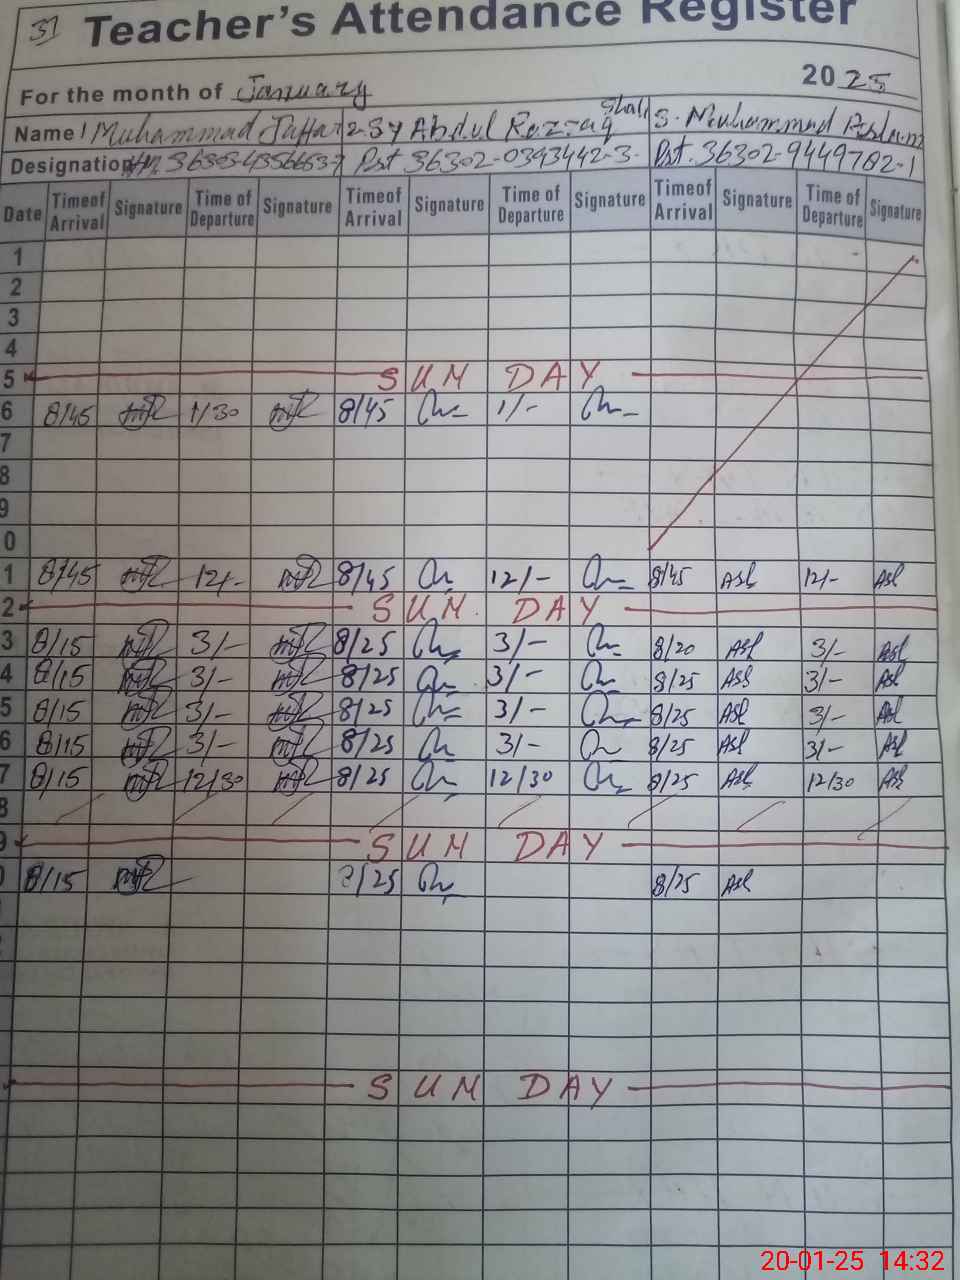 31 Teacher's Attendance Register
For the month of January 2025
Name 1 Muhammad Jaffar 2 Sy Abdul Razzaq Shah 3. Muhammad
Designation Pst 36302-0393442-3 Pst. 36302-9449782-1
Date Time of Arrival Signature Time of Departure Signature Time of Arrival Signature Time of Departure Signature Time of Arrival Signature Time of Departure Signature
1
2
3
4
5 SUN DAY
6 8/45 1/30 8/45 1/-
7
8
9
0
1 8/45 12/- 8/45 12/- 8/45 Asl 12/- Asl
2 SUN DAY
3 8/15 3/- 8/25 3/- 8/20 Asl 3/- Asl
4 8/15 3/- 8/25 3/- 8/25 Asl 3/- Asl
5 8/15 3/- 8/25 3/- 8/25 Asl 3/- Asl
6 8/15 3/- 8/25 3/- 8/25 Asl 3/- Asl
7 8/15 12/30 8/25 12/30 8/25 Asl 12/30 Asl
8
9 SUN DAY
0 8/15 8/25 8/25 Asl
SUN DAY
20-01-25 14:32